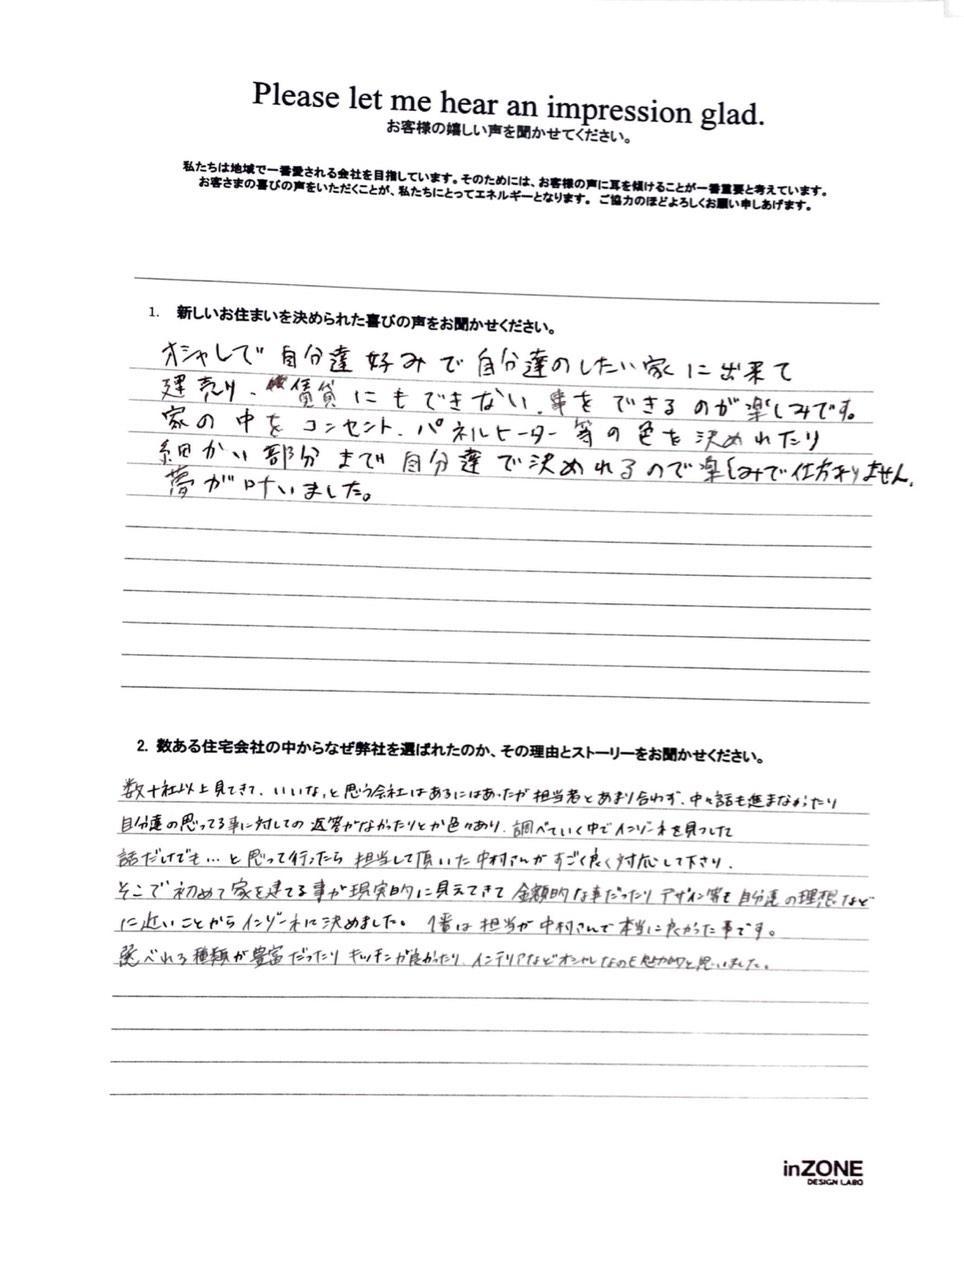 Please let me hear an impression glad.
お客様の嬉しい声を聞かせてください。
私たちは地域で一番愛される会社を目指しています。そのためには、お客様の声に耳を傾けることが一番重要と考えています。
お客さまの喜びの声をいただくことが、私たちにとってエネルギーとなります。ご協力のほどよろしくお願い申しあげます。
1. 新しいお住まいを決められた喜びの声をお聞かせください。
オシャレで自分達好みで自分達のしたい家に出来て
建売り、賃貸にもできない、事をできるのが楽しみです。
家の中をコンセント、パネルヒーター等の色を決めれたり
細かい部分まで自分達で決めれるので楽しみで仕方ありません。
夢が叶いました。
2. 数ある住宅会社の中からなぜ弊社を選ばれたのか、その理由とストーリーをお聞かせください。
数十社以上見てきて、いいな、と思う会社はあるにはあったが担当者とあまり合わず、中々話も進まなかったり
自分達の思ってる事に対しての返答がなかったりとか色々あり、調べていく中でインゾーネを見つして
話だけでも…と思って行ったら担当して頂いた中村さんがすごく良く対応して下さり、
そこで初めて家を建てる事が現実的に見えてきて金額的な事だったりデザイン等も自分達の理想など
に近いことからインゾーネに決めました。1番は担当が中村さんで本当に良かった事です。
選べれる種類が豊富だったりキッチンが良かったり、インテリアなどオシャレなのも魅力的と思いました。
inZONE
DESIGN LABO